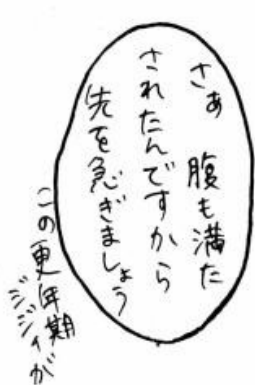 さぁ　腹も満た
されたんですから
先を急ぎましょう
この更年期
ジジィが